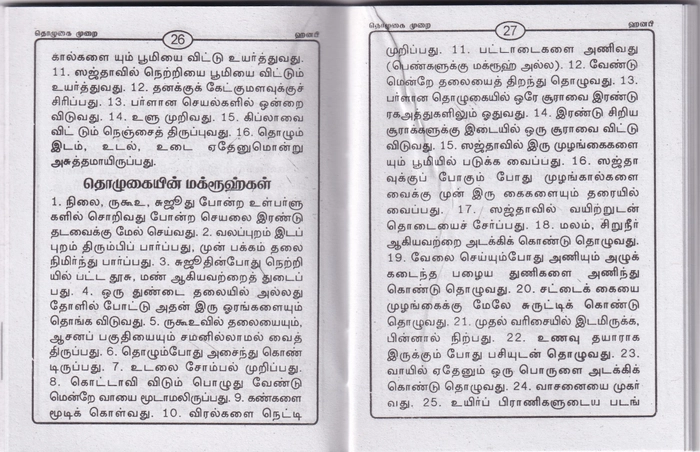 தொழுகை முறை 26 ஹனபி
கால்களை யும் பூமியை விட்டு உயர்த்துவது.
11. ஸஜ்தாவில் நெற்றியை பூமியை விட்டும்
உயர்த்துவது. 12. தனக்குக் கேட்குமளவுக்குச்
சிரிப்பது. 13. பர்ளான செயல்களில் ஒன்றை
விடுவது. 14. உளு முறிவது. 15. கிப்லாவை
விட் டும் நெஞ்சைத் திருப்புவது. 16. தொழும்
இடம், உடல், உடை ஏதேனுமொன்று
அசுத்தமாயிருப்பது.
தொழுகையின் மக்ரூஹ்கள்
1. நிலை, ருகூஉ, சுஜூ து போன்ற உள்பர்ளு
களில் சொறிவது போன்ற செயலை இரண்டு
தடவைக்கு மேல் செய்வது. 2. வலப்புறம் இடப்
புறம் திரும்பிப் பார்ப்பது, முன் பக்கம் தலை
நிமிர்ந்து பார்ப்பது. 3. சுஜூதின்போது நெற்றி
யில் பட்ட தூசு, மண் ஆகியவற்றைத் துடைப்
பது. 4. ஒரு துண்டை தலையில் அல்லது
தோளில் போட்டு அதன் இரு ஓரங்களையும்
தொங்க விடுவது. 5. ருகூஉவில் தலையையும்,
ஆசனப் பகுதியையும் சமனில்லாமல் வைத்
திருப்பது. 6. தொழும்போது அசைந்து கொண்
டிருப்பது. 7. உடலை சோம்பல் முறிப்பது.
8. கொட்டாவி விடும் பொழுது வேண்டு
மென்றே வாயை மூடாமலிருப்பது. 9. கண்களை
மூடிக் கொள்வது. 10. விரல்களை நெட்டி
தொழுகை முறை 27 ஹனபி
முறிப்பது. 11. பட்டாடைகளை அணிவது
(பெண்களுக்கு மக்ரூஹ் அல்ல). 12. வேண்டு
மென்றே தலையைத் திறந்து தொழுவது. 13.
பர்ளான தொழுகையில் ஒரே சூராவை இரண்டு
ரகஅத்துகளிலும் ஓதுவது. 14. இரண்டு சிறிய
சூராக்களுக்கு இடையில் ஒரு சூராவை விட்டு
விடுவது. 15. ஸஜ்தாவில் இரு முழங்கைகளை
யும் பூமியில் படுக்க வைப்பது. 16. ஸஜ்தா
வுக்குப் போகும் போது முழங்கால்களை
வைக்கு முன் இரு கைகளையும் தரையில்
வைப்பது. 17. ஸஜ்தாவில் வயிற்றுடன்
தொடையைச் சேர்ப்பது. 18. மலம், சிறுநீர்
ஆகியவற்றை அடக்கிக் கொண்டு தொழுவது.
19. வேலை செய்யும்போது அணியும் அழுக்
கடைந்த பழைய துணிகளை அணிந்து
கொண்டு தொழுவது. 20. சட்டைக் கையை
முழங்கைக்கு மேலே சுருட்டிக் கொண்டு
தொழுவது. 21. முதல் வரிசையில் இடமிருக்க,
பின்னால் நிற்பது. 22. உணவு தயாராக
இருக்கும் போது பசியுடன் தொழுவது. 23.
வாயில் ஏதேனும் ஒரு பொருளை அடக்கிக்
கொண்டு தொழுவது. 24. வாசனையை முகர்
வது. 25. உயிர்ப் பிராணிகளுடைய படங்